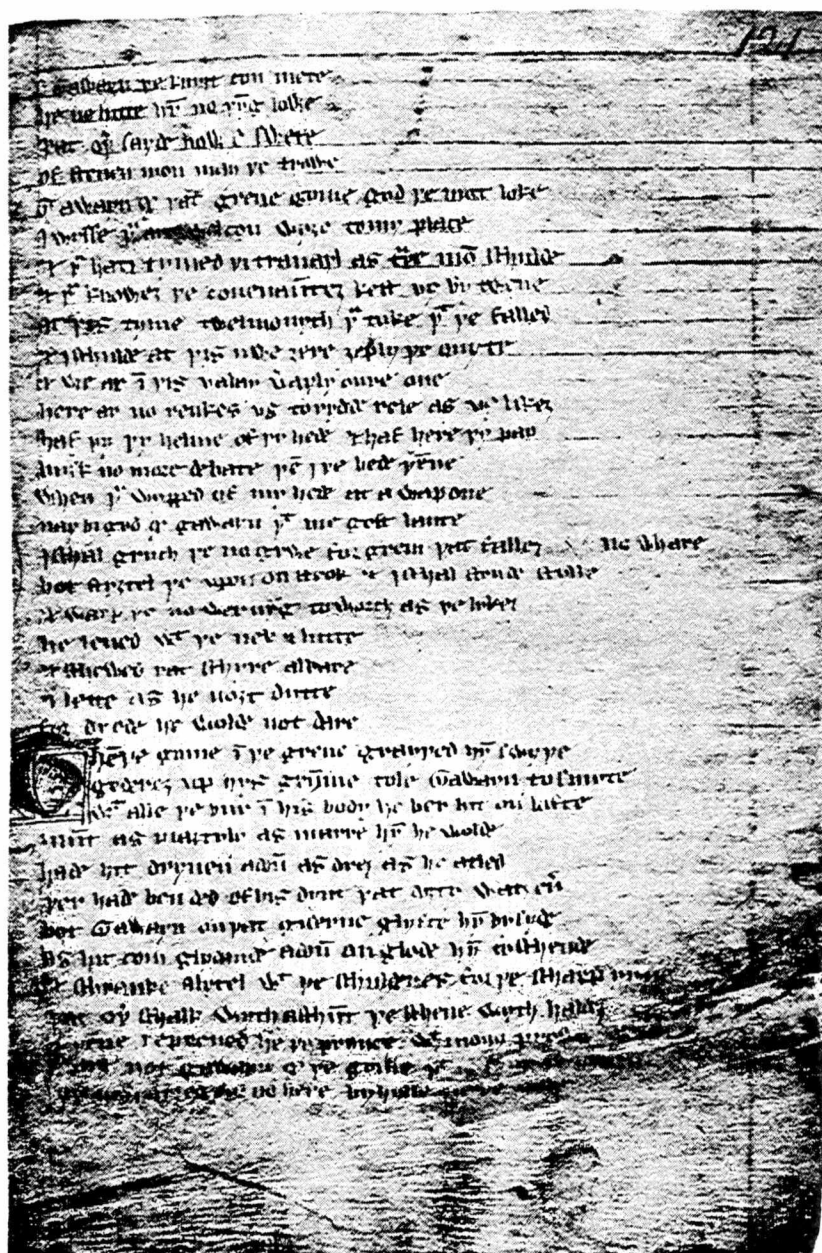 121
gawayn þe knyȝt con mete
he ne lutte hȳ no þȳg lowe
þat oþ̉ sayde now s̉ swete
of steuen mon may þe trowe
Gawayn q̊ þat grene gome god þe mot loke
I wysse þ͛ welcom wyȝe to my place
& þ͛ hatz tymed þi trauayl as truee mō schulde
& þ͛ knowez þe couenaūtez kest v9 by twene
at þis tyme twelmonyth þ͛ toke þ͛ þe falled
& I schulde at þis nwe ȝere ȝeply þe quyte
& we ar ī þis valay v̉ayly oure one
here ar no renkes vs to rydde rele as v9 likez
haf þy þy helme of þy hede & haf here þy pay
busk no more debate þē I þe bede þēne
when þ͛ wypped of my hede at a wap one
nay bi god q̊ gawayn þ͛ me gost lante
I schal gruch þe no grwe for grem þat fallez no whare
bot styȝtel þe vpon on strok & I schal stonde stylle
& warp þe no wernȳg to worch as þe lykez
he lened wͭ þe nek & lutte
& schewed þat schyre al bare
& lette as he noȝt dutte
for drede he wolde not dare
hēn þe gome ī þe grene grayþed hȳ swyþe
gederez vp hys grȳme tole Gawayn to smyte
wͭ alle þe bur ī his body he ber hit on lofte
munt as maȝtyly as marre hȳ he wolde
hade hit dryuen adoū as dreȝ as he atled
þer hade ben ded of his dynt þat doȝty watz eū
bot Gawayn on þat giserne glyfte hȳ bysyde
as hit com glydande adoū on glode hȳ to schende
& schranke a lytel wͭ þe schulderes for þe scharp yrne
þat oþ̉ schalk wyth a schūt þe schene wyth haldez
& þēne repreued he þe prynce wͭ mony
not gawayn q̊ þe gome þ͛
no here by hylle